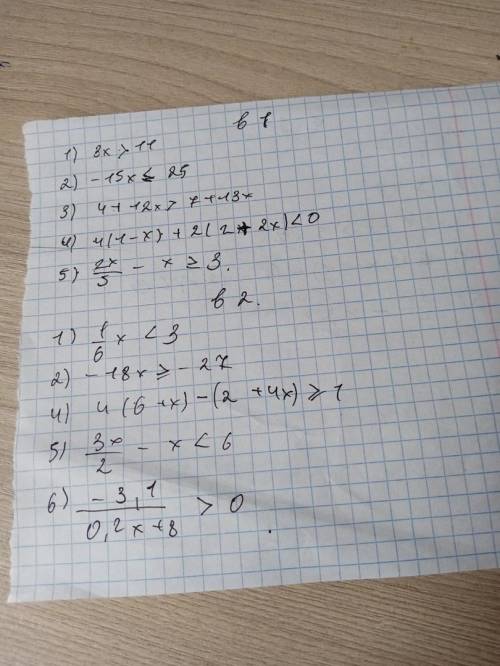 в 1
1) 8x > 11
2) -15x ≤ 25
3) 4 + 12x > 7 + 13x
4) 4(1-x) + 2(2 + 2x) < 0
5) 2x/5 - x ≥ 3.
в 2.
1) 1/6 x < 3
2) -18x ≥ -27
4) 4(6+x) - (2+4x) ≥ 1
5) 3x/2 - x < 6
6) -3,1/0,2x+8 > 0